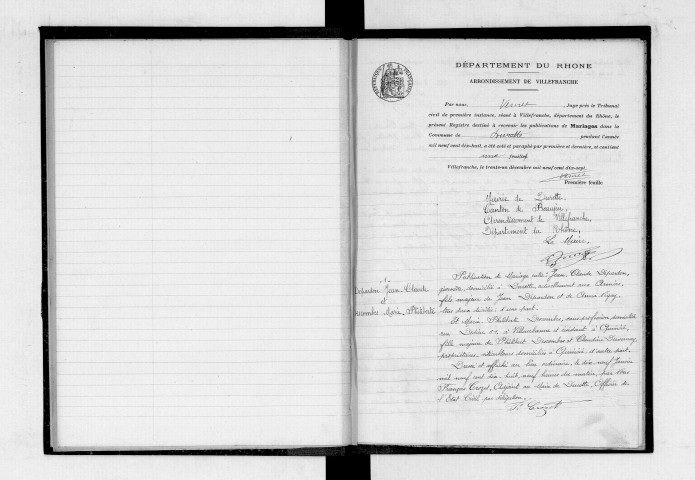 DÉPARTEMENT DU RHONE
ARRONDISSEMENT DE VILLEFRANCHE
Par nous, Juge près le Tribunal
civil de première instance, séant à Villefranche, département du Rhône, le
présent Registre destiné à recevoir les publications de Mariages dans la
Commune de Durette pendant l'année
mil neuf cent dix-huit, a été coté et paraphé par première et dernière, et contient
une feuillet
Villefranche, le trente-un décembre mil neuf cent dix-sept.
Première feuille
Mairie de Durette
Canton de Beaujeu,
Arrondissement de Villefranche,
Département du Rhône,
Le Maire,
Depardon Jean-Claude
et
Descombes Marie Philiberte
Publication de Mariage entre Jean Claude Depardon,
domicilié à Durette, actuellement aux Armées,
fils majeur de Jean Depardon et de
tous deux décédés, d'une part.
Et Marie Philiberte Descombes, sans profession, domiciliée
rue à Villeurbanne et résidant à Quincié,
fille majeure de Philibert Descombes et Claudine
propriétaires, domiciliés à Quincié, d'autre part.
Dressé et affiché au lieu ordinaire, le dix-neuf Janvier
mil neuf cent dix-huit, neuf heures du matin, par Nous
François Crozet, Adjoint au Maire de Durette, Officier de
l'Etat Civil par délégation.
F. Crozet